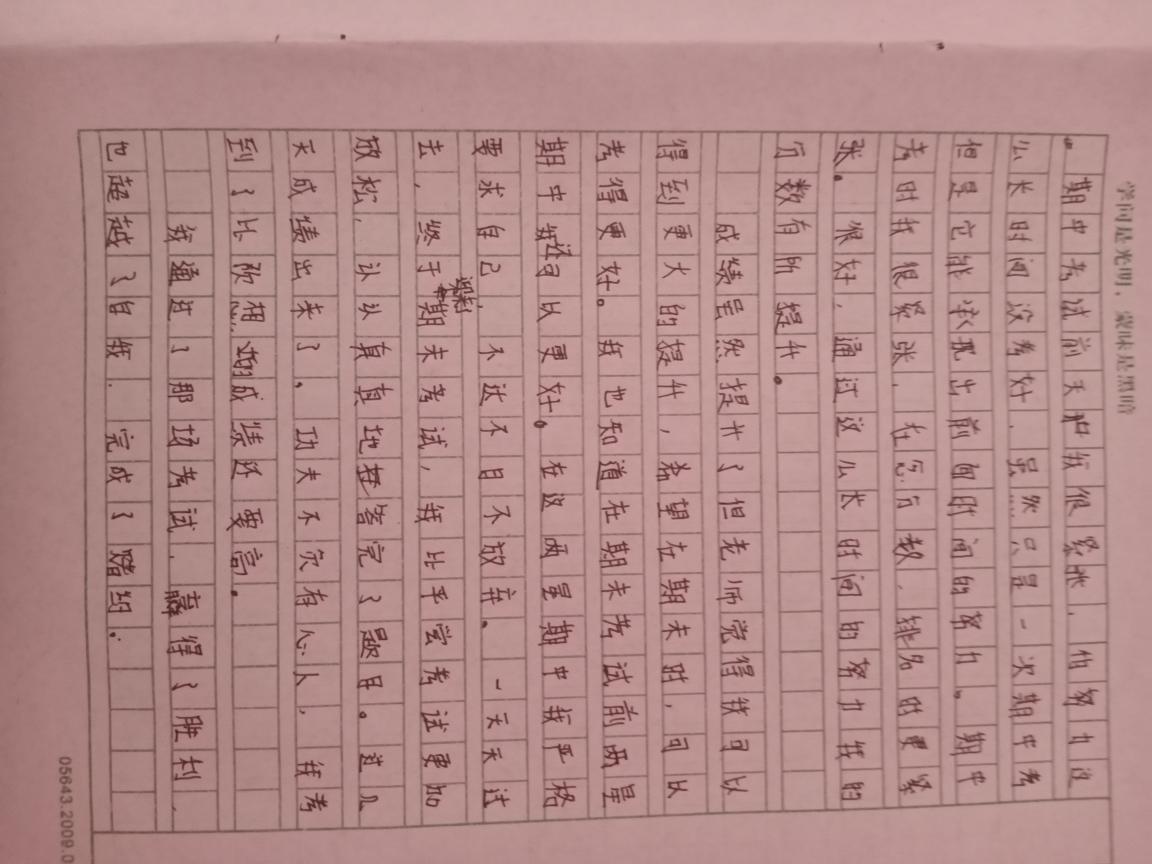 学问是光明，蒙昧是黑暗
。期中考试前天我很紧张，怕努力这
么长时间没考好，虽然只是一次期中考
但是它能承现出前段时间的努力。期中
考时我很紧张，在写分数，排名时更紧
张。很好，通过这么长时间的努力我的
分数有所提升。
成绩虽然提升了但老师觉得我可以
得到更大的提升，希望在期末时，可以
考得更好。我也知道在期末考试前两星
期中我还可以更好。在这两星期中我严格
要求自己，不达不目不放弃。一天天过
去，终于迎来期末考试，我比平尝考试更加
放松，认认真真地答完了题目。过几
天成绩出来了，功夫不欠有心人，我考
到了比预想的成绩还要高。
我通过了那场考试，赢得了胜利，
也超越了自我，完成了赌约。
05643.2009.0